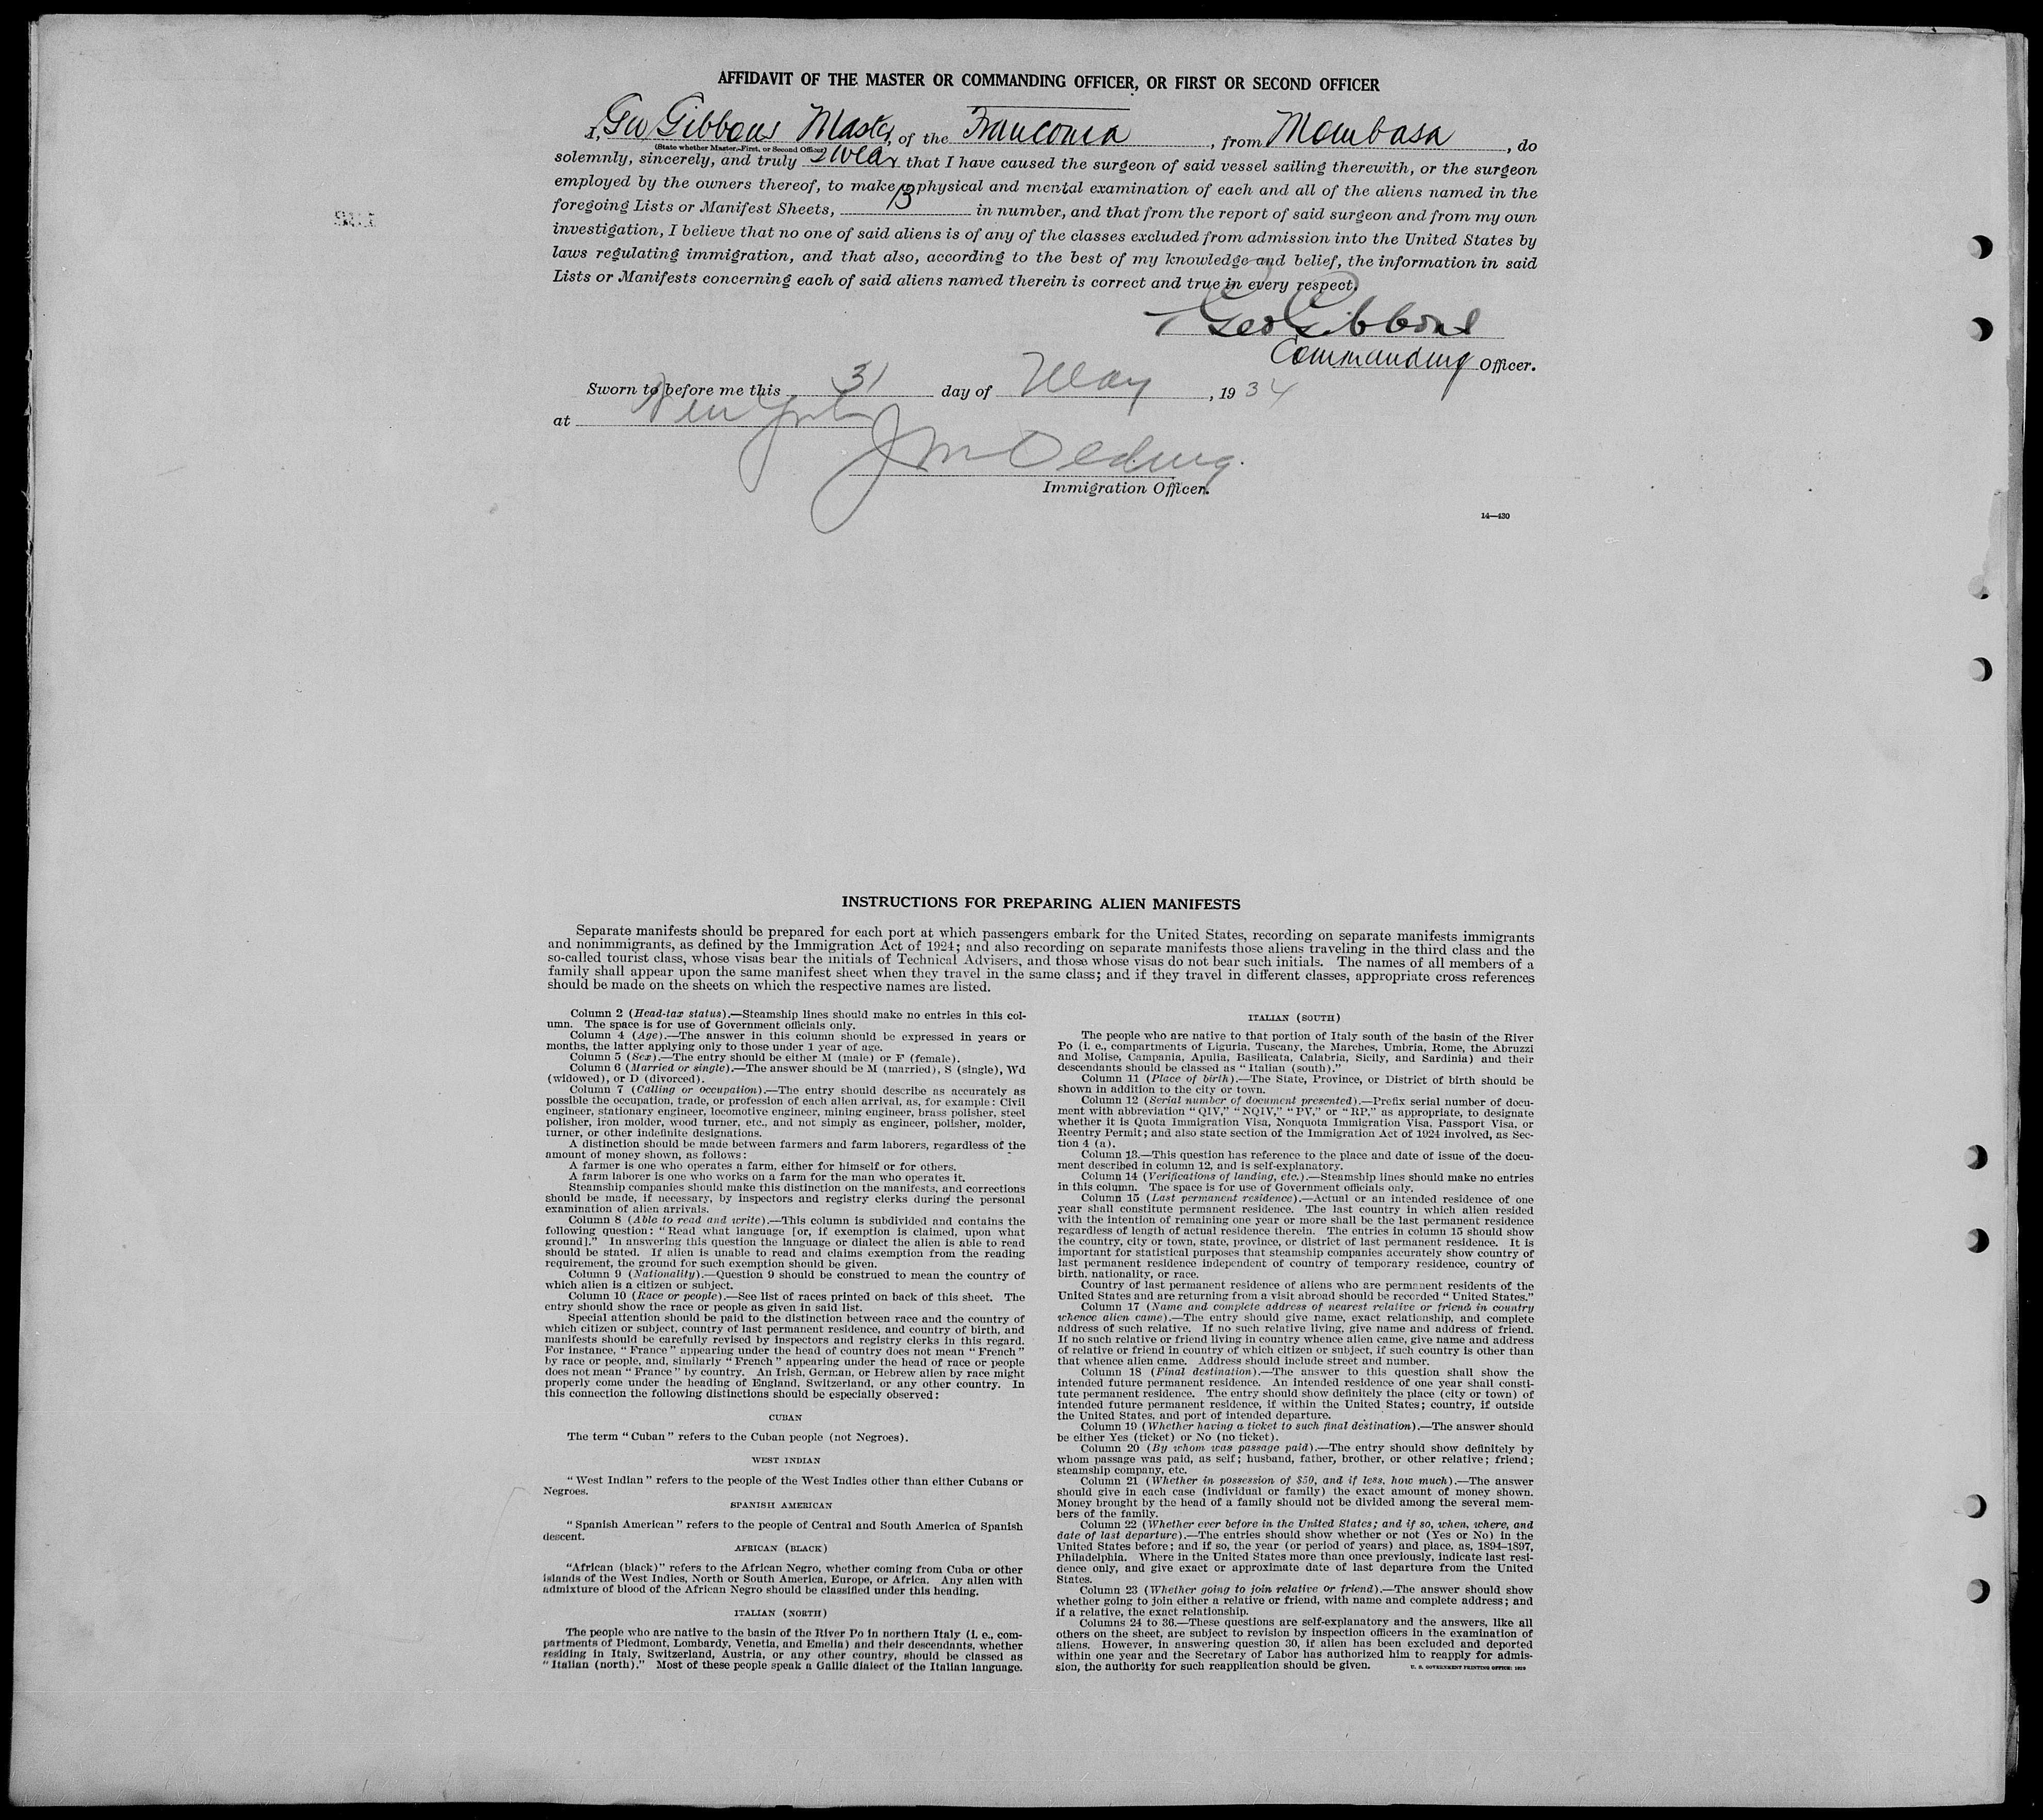 AFFIDAVIT OF THE MASTER OR COMMANDING OFFICER, OR FIRST OR SECOND OFFICER
I, Geo Gibbons Master, of the Franconia, from Mombasa, do
(State whether Master, First, or Second Officer)
solemnly, sincerely, and truly swear that I have caused the surgeon of said vessel sailing therewith, or the surgeon
employed by the owners thereof, to make a physical and mental examination of each and all of the aliens named in the
foregoing Lists or Manifest Sheets, 13 in number, and that from the report of said surgeon and from my own
investigation, I believe that no one of said aliens is of any of the classes excluded from admission into the United States by
laws regulating immigration, and that also, according to the best of my knowledge and belief, the information in said
Lists or Manifests concerning each of said aliens named therein is correct and true in every respect.
Geo Gibbons
Commanding Officer.
Sworn to before me this 31 day of May, 1934
at New York
Immigration Officer.
14—430
INSTRUCTIONS FOR PREPARING ALIEN MANIFESTS
Separate manifests should be prepared for each port at which passengers embark for the United States, recording on separate manifests immigrants
and nonimmigrants, as defined by the Immigration Act of 1924; and also recording on separate manifests those aliens traveling in the third class and the
so-called tourist class, whose visas bear the initials of Technical Advisers, and those whose visas do not bear such initials. The names of all members of a
family shall appear upon the same manifest sheet when they travel in the same class; and if they travel in different classes, appropriate cross references
should be made on the sheets on which the respective names are listed.
Column 2 (Head-tax status).—Steamship lines should make no entries in this col-
umn. The space is for use of Government officials only.
Column 4 (Age).—The answer in this column should be expressed in years or
months, the latter applying only to those under 1 year of age.
Column 5 (Sex).—The entry should be either M (male) or F (female).
Column 6 (Married or single).—The answer should be M (married), S (single), Wd
(widowed), or D (divorced).
Column 7 (Calling or occupation).—The entry should describe as accurately as
possible the occupation, trade, or profession of each alien arrival, as, for example: Civil
engineer, stationary engineer, locomotive engineer, mining engineer, brass polisher, steel
polisher, iron molder, wood turner, etc., and not simply as engineer, polisher, molder,
turner, or other indefinite designations.
A distinction should be made between farmers and farm laborers, regardless of the
amount of money shown, as follows:
A farmer is one who operates a farm, either for himself or for others.
A farm laborer is one who works on a farm for the man who operates it.
Steamship companies should make this distinction on the manifests, and corrections
should be made, if necessary, by inspectors and registry clerks during the personal
examination of alien arrivals.
Column 8 (Able to read and write).—This column is subdivided and contains the
following question: "Read what language [or, if exemption is claimed, upon what
ground]." In answering this question the language or dialect the alien is able to read
should be stated. If alien is unable to read and claims exemption from the reading
requirement, the ground for such exemption should be given.
Column 9 (Nationality).—Question 9 should be construed to mean the country of
which alien is a citizen or subject.
Column 10 (Race or people).—See list of races printed on back of this sheet. The
entry should show the race or people as given in said list.
Special attention should be paid to the distinction between race and the country of
which citizen or subject, country of last permanent residence, and country of birth, and
manifests should be carefully revised by inspectors and registry clerks in this regard.
For instance, "France" appearing under the head of country does not mean "French"
by race or people, and, similarly "French" appearing under the head of race or people
does not mean "France" by country. An Irish, German, or Hebrew alien by race might
properly come under the heading of England, Switzerland, or any other country. In
this connection the following distinctions should be especially observed:
CUBAN
The term "Cuban" refers to the Cuban people (not Negroes).
WEST INDIAN
"West Indian" refers to the people of the West Indies other than either Cubans or
Negroes.
SPANISH AMERICAN
"Spanish American" refers to the people of Central and South America of Spanish
descent.
AFRICAN (BLACK)
"African (black)" refers to the African Negro, whether coming from Cuba or other
islands of the West Indies, North or South America, Europe, or Africa. Any alien with
admixture of blood of the African Negro should be classified under this heading.
ITALIAN (NORTH)
The people who are native to the basin of the River Po in northern Italy (i. e., com-
partments of Piedmont, Lombardy, Venetia, and Emelia) and their descendants, whether
residing in Italy, Switzerland, Austria, or any other country, should be classed as
"Italian (north)." Most of these people speak a Gallic dialect of the Italian language.
ITALIAN (SOUTH)
The people who are native to that portion of Italy south of the basin of the River
Po (i. e., compartments of Liguria, Tuscany, the Marches, Umbria, Rome, the Abruzzi
and Molise, Campania, Apulia, Basilicata, Calabria, Sicily, and Sardinia) and their
descendants should be classed as "Italian (south)."
Column 11 (Place of birth).—The State, Province, or District of birth should be
shown in addition to the city or town.
Column 12 (Serial number of document presented).—Prefix serial number of docu-
ment with abbreviation "QIV," "NQIV," "PV," or "RP," as appropriate, to designate
whether it is Quota Immigration Visa, Nonquota Immigration Visa, Passport Visa, or
Reentry Permit; and also state section of the Immigration Act of 1924 involved, as Sec-
tion 4 (a).
Column 13.—This question has reference to the place and date of issue of the docu-
ment described in column 12, and is self-explanatory.
Column 14 (Verifications of landing, etc.).—Steamship lines should make no entries
in this column. The space is for use of Government officials only.
Column 15 (Last permanent residence).—Actual or an intended residence of one
year shall constitute permanent residence. The last country in which alien resided
with the intention of remaining one year or more shall be the last permanent residence
regardless of length of actual residence therein. The entries in column 15 should show
the country, city or town, state, province, or district of last permanent residence. It is
important for statistical purposes that steamship companies accurately show country of
last permanent residence independent of country of temporary residence, country of
birth, nationality, or race.
Country of last permanent residence of aliens who are permanent residents of the
United States and are returning from a visit abroad should be recorded "United States."
Column 17 (Name and complete address of nearest relative or friend in country
whence alien came).—The entry should give name, exact relationship, and complete
address of such relative. If no such relative living, give name and address of friend.
If no such relative or friend living in country whence alien came, give name and address
of relative or friend in country of which citizen or subject, if such country is other than
that whence alien came. Address should include street and number.
Column 18 (Final destination).—The answer to this question shall show the
intended future permanent residence. An intended residence of one year shall consti-
tute permanent residence. The entry should show definitely the place (city or town) of
intended future permanent residence, if within the United States; country, if outside
the United States, and port of intended departure.
Column 19 (Whether having a ticket to such final destination).—The answer should
be either Yes (ticket) or No (no ticket).
Column 20 (By whom was passage paid).—The entry should show definitely by
whom passage was paid, as self; husband, father, brother, or other relative; friend;
steamship company, etc.
Column 21 (Whether in possession of $50, and if less, how much).—The answer
should give in each case (individual or family) the exact amount of money shown.
Money brought by the head of a family should not be divided among the several mem-
bers of the family.
Column 22 (Whether ever before in the United States; and if so, when, where, and
date of last departure).—The entries should show whether or not (Yes or No) in the
United States before; and if so, the year (or period of years) and place, as, 1894–1897,
Philadelphia. Where in the United States more than once previously, indicate last resi-
dence only, and give exact or approximate date of last departure from the United
States.
Column 23 (Whether going to join relative or friend).—The answer should show
whether going to join either a relative or friend, with name and complete address; and
if a relative, the exact relationship.
Columns 24 to 36.—These questions are self-explanatory and the answers, like all
others on the sheet, are subject to revision by inspection officers in the examination of
aliens. However, in answering question 30, if alien has been excluded and deported
within one year and the Secretary of Labor has authorized him to reapply for admis-
sion, the authority for such reapplication should be given.
U. S. GOVERNMENT PRINTING OFFICE: 1929